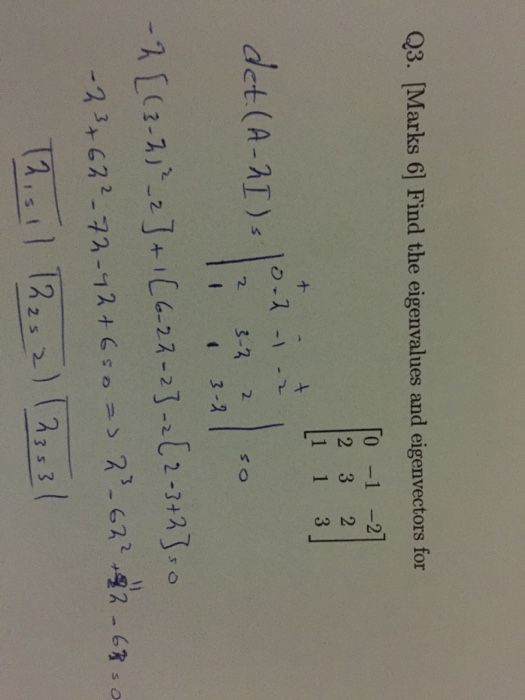 Q3. [Marks 6] Find the eigenvalues and eigenvectors for
[0 -1 -2
2 3 2
1 1 3]
+ - +
det.(A-λI) = |0-λ -1 -2
2 3-λ 2
1 1 3-λ| = 0
-λ[(3-λ)²-2]+1[6-2λ-2]-2[2-3+λ]=0
-λ³+6λ²-7λ-4λ+6=0 => λ³-6λ²+11λ-6=0
λ₁=1 λ₂=2 λ₃=3